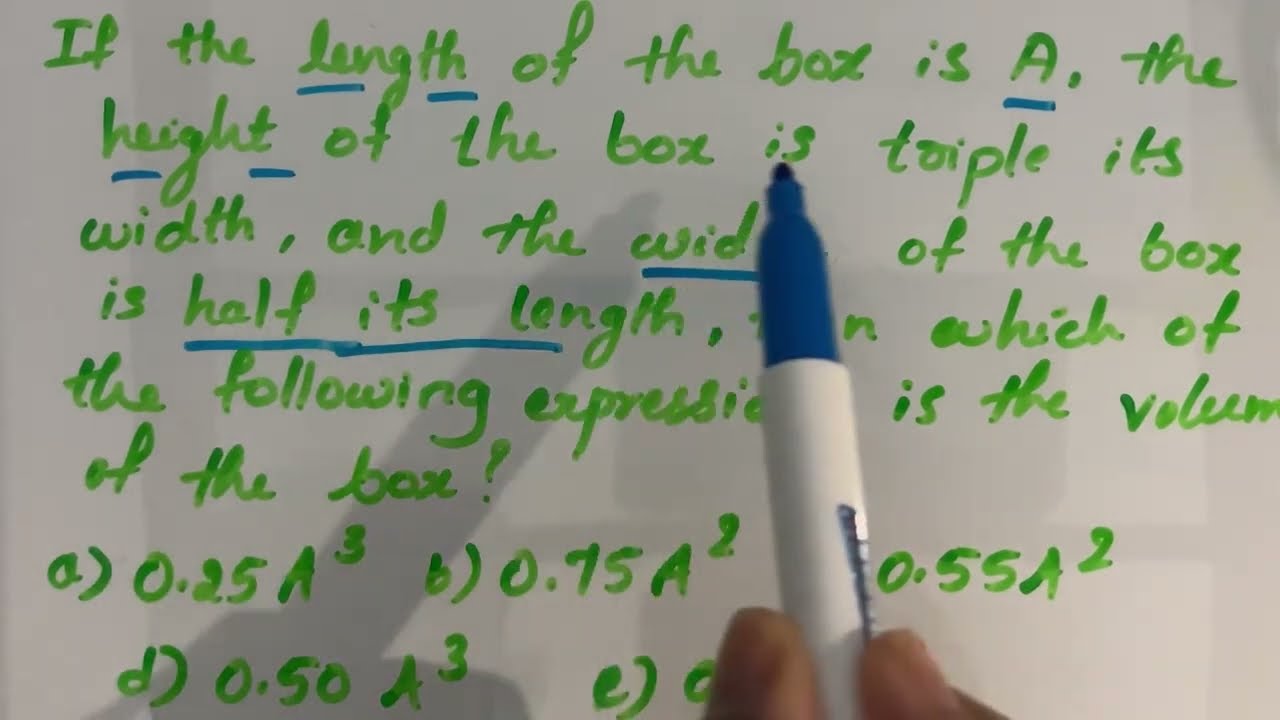 If the length of the box is A, the
height of the box is triple its
width, and the of the box
is half its length, which of
the following is the
of the box?
a) 0.25A³ b) 0.75A² 0.55A²
d) 0.50 A³ e)